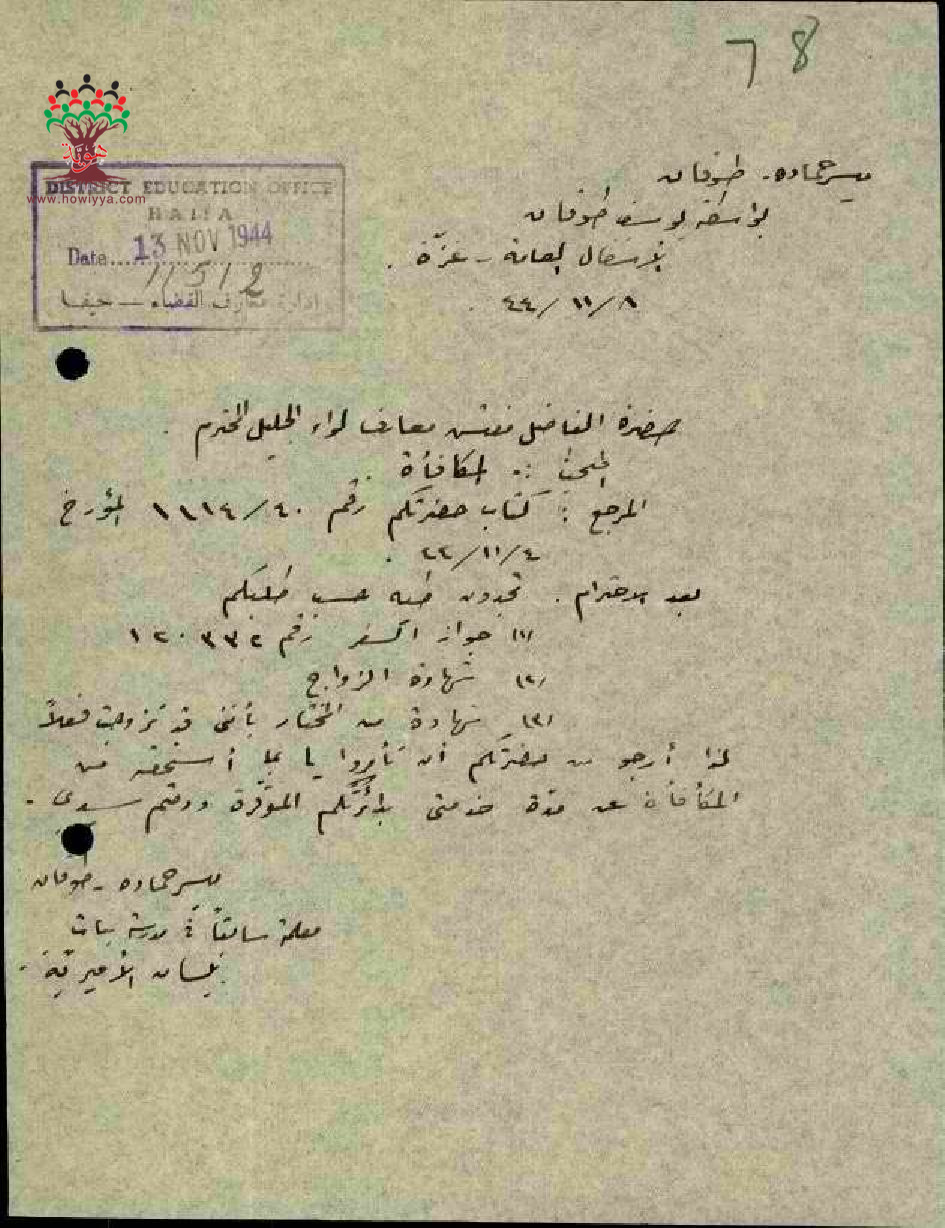 78
هوية
www.howiyya.com
DISTRICT EDUCATION OFFICE
HAIFA
Date 13 NOV 1944
11512
ادارة معارف القضاء — حيفا
يسر حماده - طوقان
بواسطة يوسف طوقان
الاشغال العامة - غزة .
٤٤/١١/٨ .
حضرة الفاضل مفتش معارف لواء الجليل المحترم .
المبحث :- المكافأة .
المرجع : كتاب حضرتكم رقم ١١١٤/٤٠ المؤرخ
٤/١١/٤٤ .
بعد الاحترام . تجدون طيه حسب طلبكم
(١) جواز السفر رقم ١٢٠٣٣٢
(٢) شهادة الزواج
(٣) شهادة من المختار بأنني قد تزوجت فعلاً
لذا أرجو من حضرتكم أن تأمروا لي بما أستحقه من
المكافأة عن مدة خدمتي بدائرتكم الموقرة ودمتم سيدي .
يسر حماده - طوقان
معلمة سابقاً في مدرسة بنات
بيسان الأميرية .